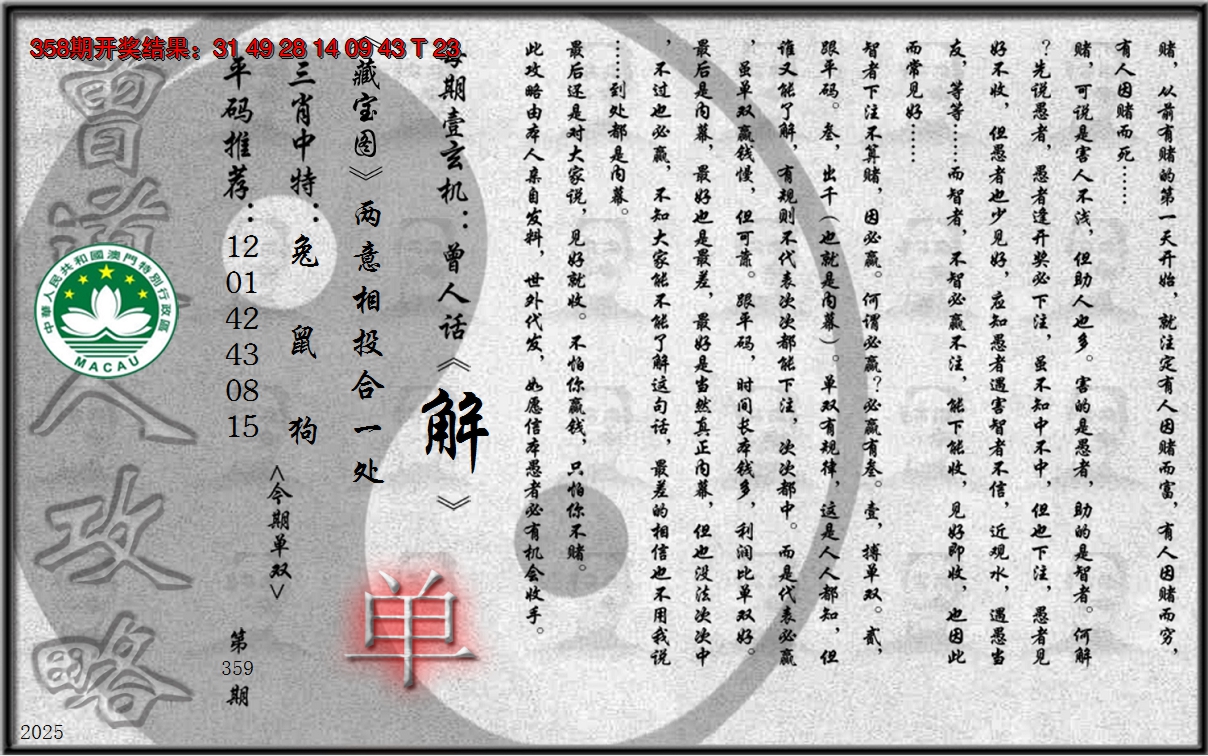 358期开奖结果：31 49 28 14 09 43 T 23
赌，从前有赌的第一天开始，就注定有人因赌而富，有人因赌而穷，
有人因赌而死……
赌，可说是害人不浅，但助人也多。害的是愚者，助的是智者。何解
？先说愚者，愚者逢开奖必下注，虽不知中不中，但也下注，愚者见
好不收，但愚者也少见好，应知愚者遇害智者不信，近观水，遇愚当
友，等等……而智者，不智必赢不注，能下能收，见好即收，也因此
而常见好……
智者下注不算赌，因必赢。何谓必赢？必赢有叁。壹，搏单双。贰，
跟平码。叁，出千（也就是内幕）。单双有规律，这是人人都知，但
谁又能了解，有规则不代表次次都能下注，次次都中。而是代表必赢
，虽单双赢钱慢，但可靠。跟平码，时间长本钱多，利润比单双好。
最后是内幕，最好也是最差，最好是当然真正内幕，但也没法次次中
，不过也必赢，不知大家能不能了解这句话，最差的相信也不用我说
……到处都是内幕。
最后还是对大家说，见好就收。不怕你赢钱，只怕你不赌。
此攻略由本人亲自发料，世外代发，如愿信本愚者必有机会收手。
每期壹玄机：曾人话《解》
《藏宝图》两意相投合一处
三肖中特：兔 鼠 狗
<今期单双>
单
平码推荐：12 01 42 43 08 15
第359期
曾道人攻略
中華人民共和國澳門特別行政區
MACAU
2025